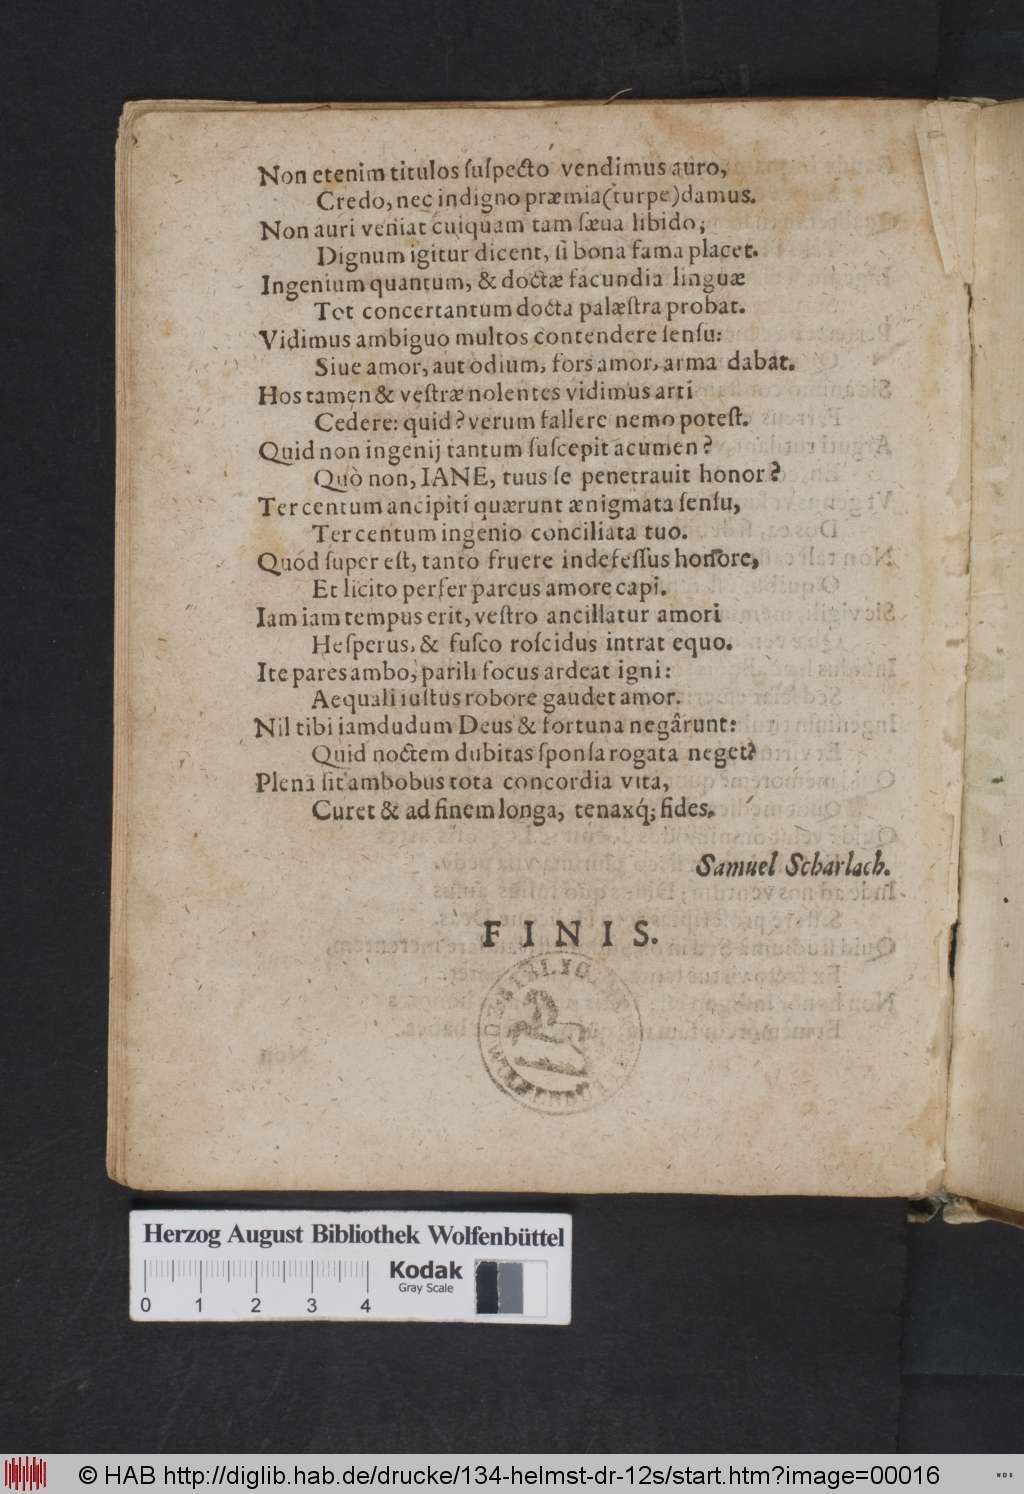 Non etenim titulos ſuſpecto vendimus auro,
Credo, nec indigno præmia (turpe) damus.
Non auri veniat cuiquam tam ſæua libido;
Dignum igitur dicent, ſi bona fama placet.
Ingenium quantum, & doctæ facundia linguæ
Tot concertantum docta palæſtra probat.
Vidimus ambiguo multos contendere ſenſu:
Siue amor, aut odium, fors amor, arma dabat.
Hos tamen & veſtræ nolentes vidimus arti
Cedere: quid? verum fallere nemo poteſt.
Quid non ingenij tantum ſuſcepit acumen?
Quò non, IANE, tuus ſe penetrauit honor?
Ter centum ancipiti quærunt ænigmata ſenſu,
Ter centum ingenio conciliata tuo.
Quód ſuper eſt, tanto fruere indefeſſus honore,
Et licito perfer parcus amore capi.
Iam iam tempus erit, veſtro ancillatur amori
Heſperus, & fuſco roſcidus intrat equo.
Ite pares ambo, parili focus ardeat igni:
Aequali iuſtus robore gaudet amor.
Nil tibi iamdudum Deus & fortuna negârunt:
Quid noctem dubitas ſponſa rogata neget?
Plena ſit ambobus tota concordia vita,
Curet & ad finem longa, tenaxq́; fides.
Samuel Scharlach.
FINIS.
Herzog August Bibliothek Wolfenbüttel
Kodak
Gray Scale
0 1 2 3 4
© HAB http://diglib.hab.de/drucke/134-helmst-dr-12s/start.htm?image=00016